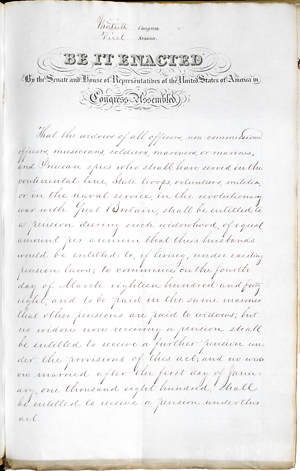 Thirtieth Congress
First Session
BE IT ENACTED
By the Senate and House of Representatives of the United States of America in
Congress Assembled,
That the widows of all officers, non commissioned
officers, musicians, soldiers, mariners, or marines,
and Indian spies who shall have served in the
continental line, State troops, volunteers, militia,
or in the naval service, in the revolutionary
war with Great Britain, shall be entitled to
a pension during such widowhood, of equal
amount per annum that their husbands
would be entitled to, if living, under existing
pension laws; to commence on the fourth
day of March eighteen hundred and forty
eight, and to be paid in the same manner
that other pensions are paid to widows; but
no widow now receiving a pension shall
be entitled to receive a further pension un-
der the provisions of this act; and no wid-
ow married after the first day of Janu-
ary, one thousand eight hundred, shall
be entitled to receive a pension under this
act.